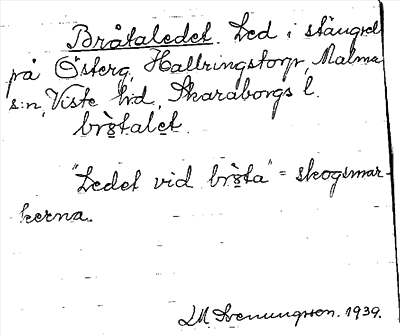 Bråtaledet. Led i stängsel
på Österg, Hallringstorp, Malma
s:n, Viste hd, Skaraborgs l.
brɔ̀talet.
"Ledet vid brɔ̀ta" = skogsmar-
kerna.
LM Svenungsson. 1939.